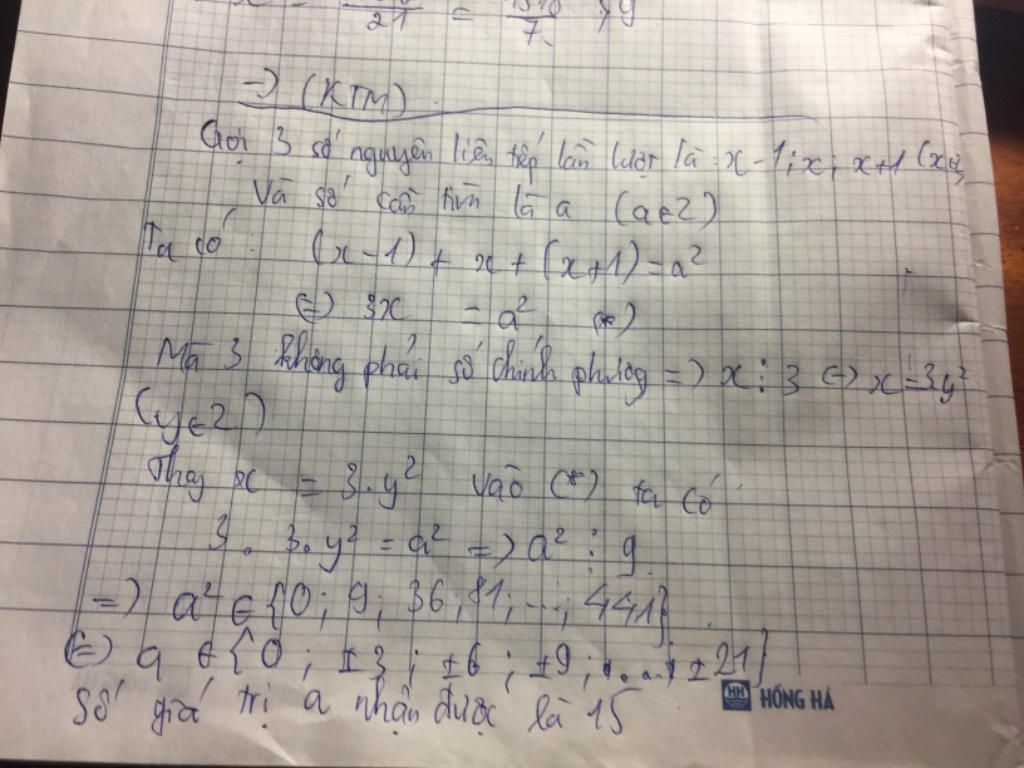 21 = 7
=> (KTM)
Gọi 3 số nguyên liên tiếp lần lượt là: x-1; x; x+1 (x∈
Và số cần tìm là a (a∈Z)
Ta có: (x-1) + x + (x+1) = a²
<=> 3x = a² (*)
Mà 3 không phải số chính phương => x ⋮ 3 <=> x = 3y²
(y∈Z)
Thay x = 3.y² vào (*) ta có
3. 3.y² = a² => a² ⋮ 9
=> a² ∈ {0; 9; 36; 81; ...; 441}
<=> a ∈ {0; ±3; ±6; ±9; ...; ±21}
HH HỒNG HÀ
Số giá trị a nhận được là 15